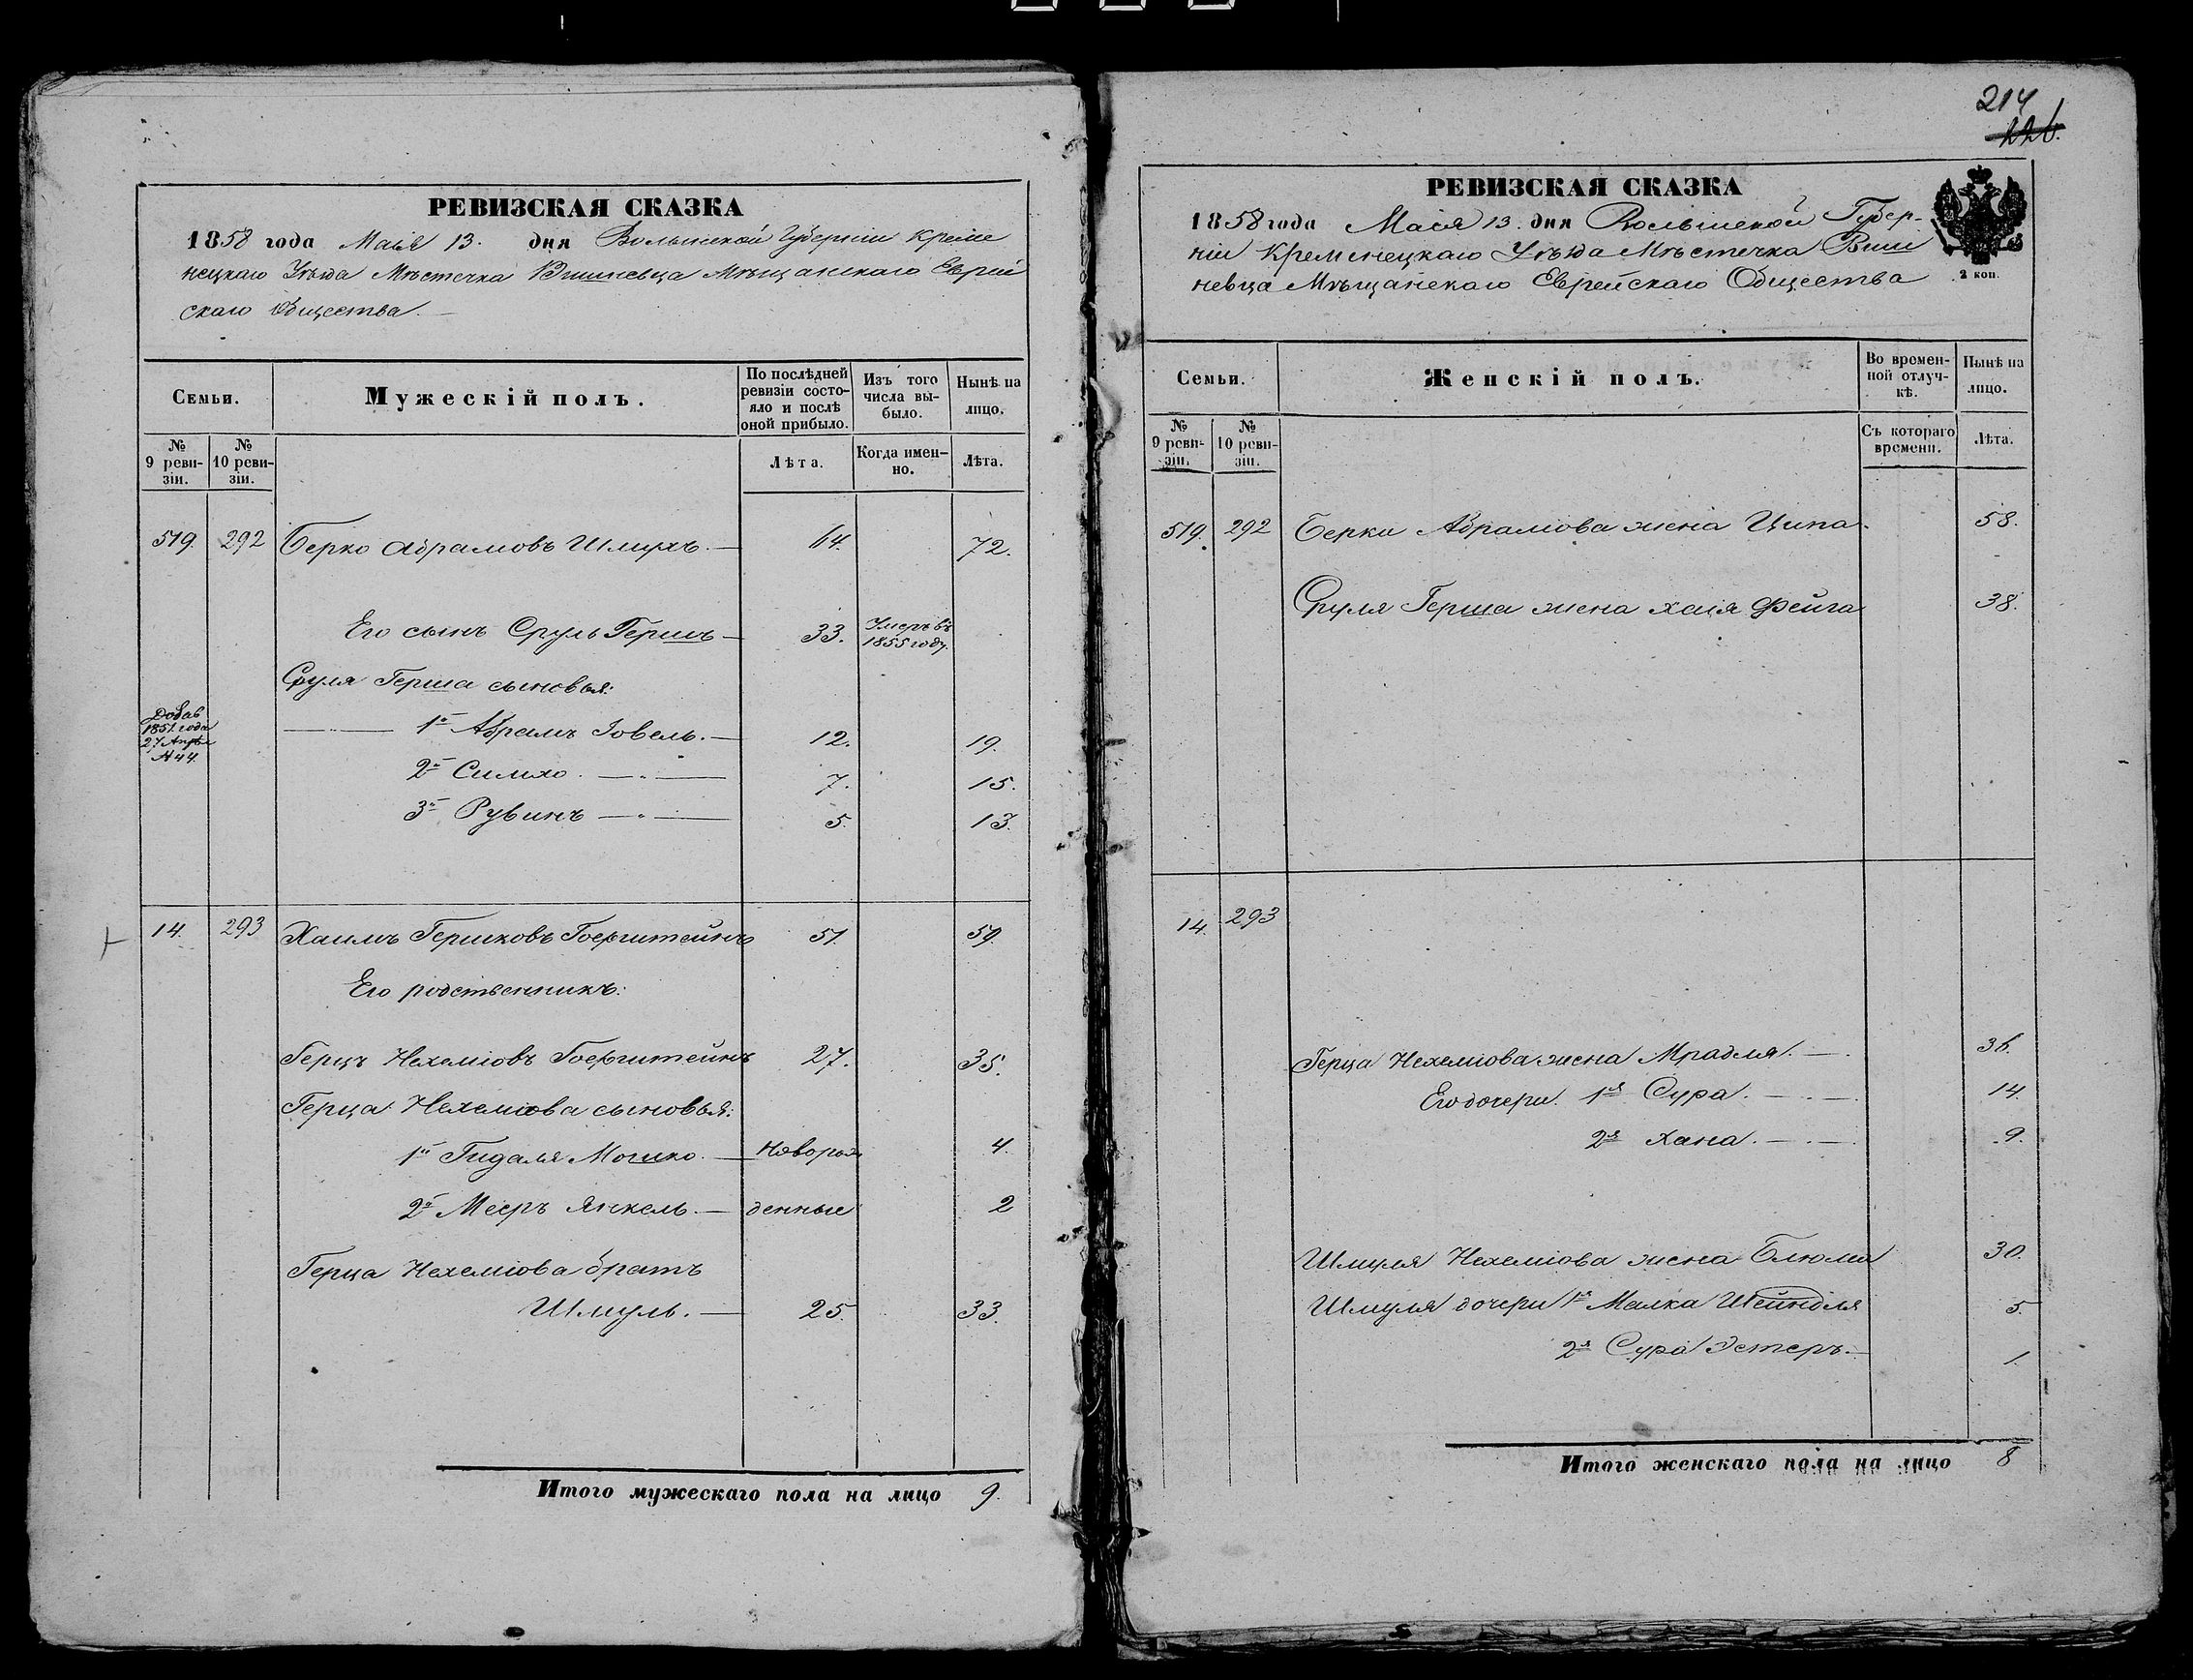 РЕВИЗСКАЯ СКАЗКА
1858 года Маія 13. дня Волынской Губерніи Креме
нецкаго Уѣзда Мѣстечка Вишневца Мѣщанскаго Еврей
скаго Общества.
Семьи.
Мужескій полъ.
По послѣдней ревизіи состояло и послѣ оной прибыло.
Изъ того числа выбыло.
Нынѣ на лицо.
№ 9 ревизіи.
№ 10 ревизіи.
Лѣта.
Когда именно.
Лѣта.
519. 292 Берко Абрамовъ Шмухъ. 64. 72.
Его сынъ Сруль Гершъ 33. Умеръ въ 1855 году.
Сруля Герша сыновья:
Добав 1851 года 27 Апрѣл
1й Абрамъ Іовель. 12. 19.
2й Симхо. 7. 15.
3й Рувинъ 5. 13.
14. 293 Хаимъ Гершковъ 51. 59.
Его родственникъ:
Герцъ Нехеміовъ 27. 35.
Герца Нехеміова сыновья:
1й Гидаля Мошко. Новорож 4.
2й Мееръ Янкель. денные 2
Герца Нехеміова братъ
Шмуль. 25. 33.
Итого мужескаго пола на лицо 9.
214
226.
РЕВИЗСКАЯ СКАЗКА
1858 года Маія 13. дня Волынской Губер-
ніи Кременецкаго Уѣзда Мѣстечка Виш
невца Мѣщанскаго Еврейскаго Общества
2 коп.
Семьи.
Женскій полъ.
Во временной отлучкѣ.
Нынѣ на лицо.
№ 9 ревизіи.
№ 10 ревизіи.
Съ котораго времени.
Лѣта.
519. 292 Берки Абрамова жена Ципа. 58.
Сруля Герша жена Хаія Фейга 38.
14. 293
Герца Нехеміова жена 36.
Его дочери. 1я Сура. 14.
2я Хана. 9.
Шмуля Нехеміова жена Блюма 30.
Шмуля дочери 1я Малка Шейндля 5.
2я Сура Эстеръ. 1.
Итого женскаго пола на лицо 8